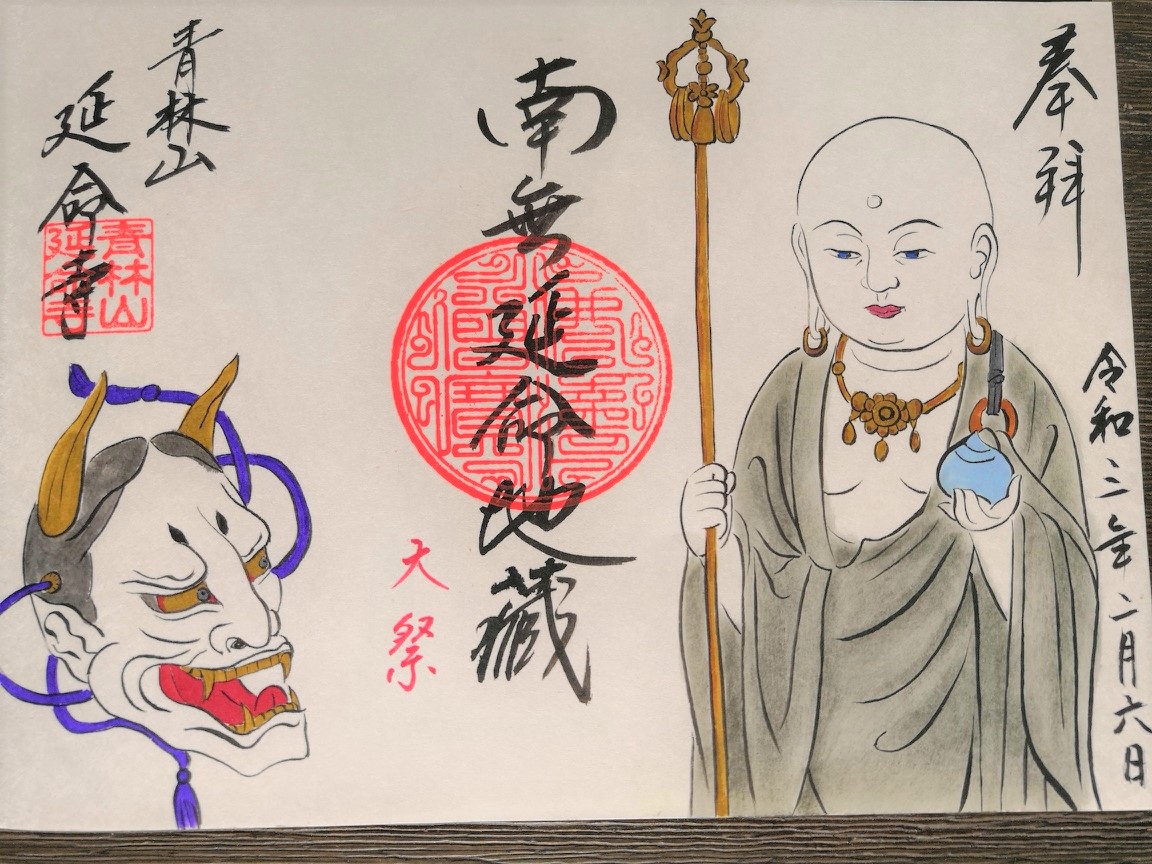 奉拝
令和三年二月六日
南無延命地蔵
大祭
青林山
延命寺
青林山
延命寺